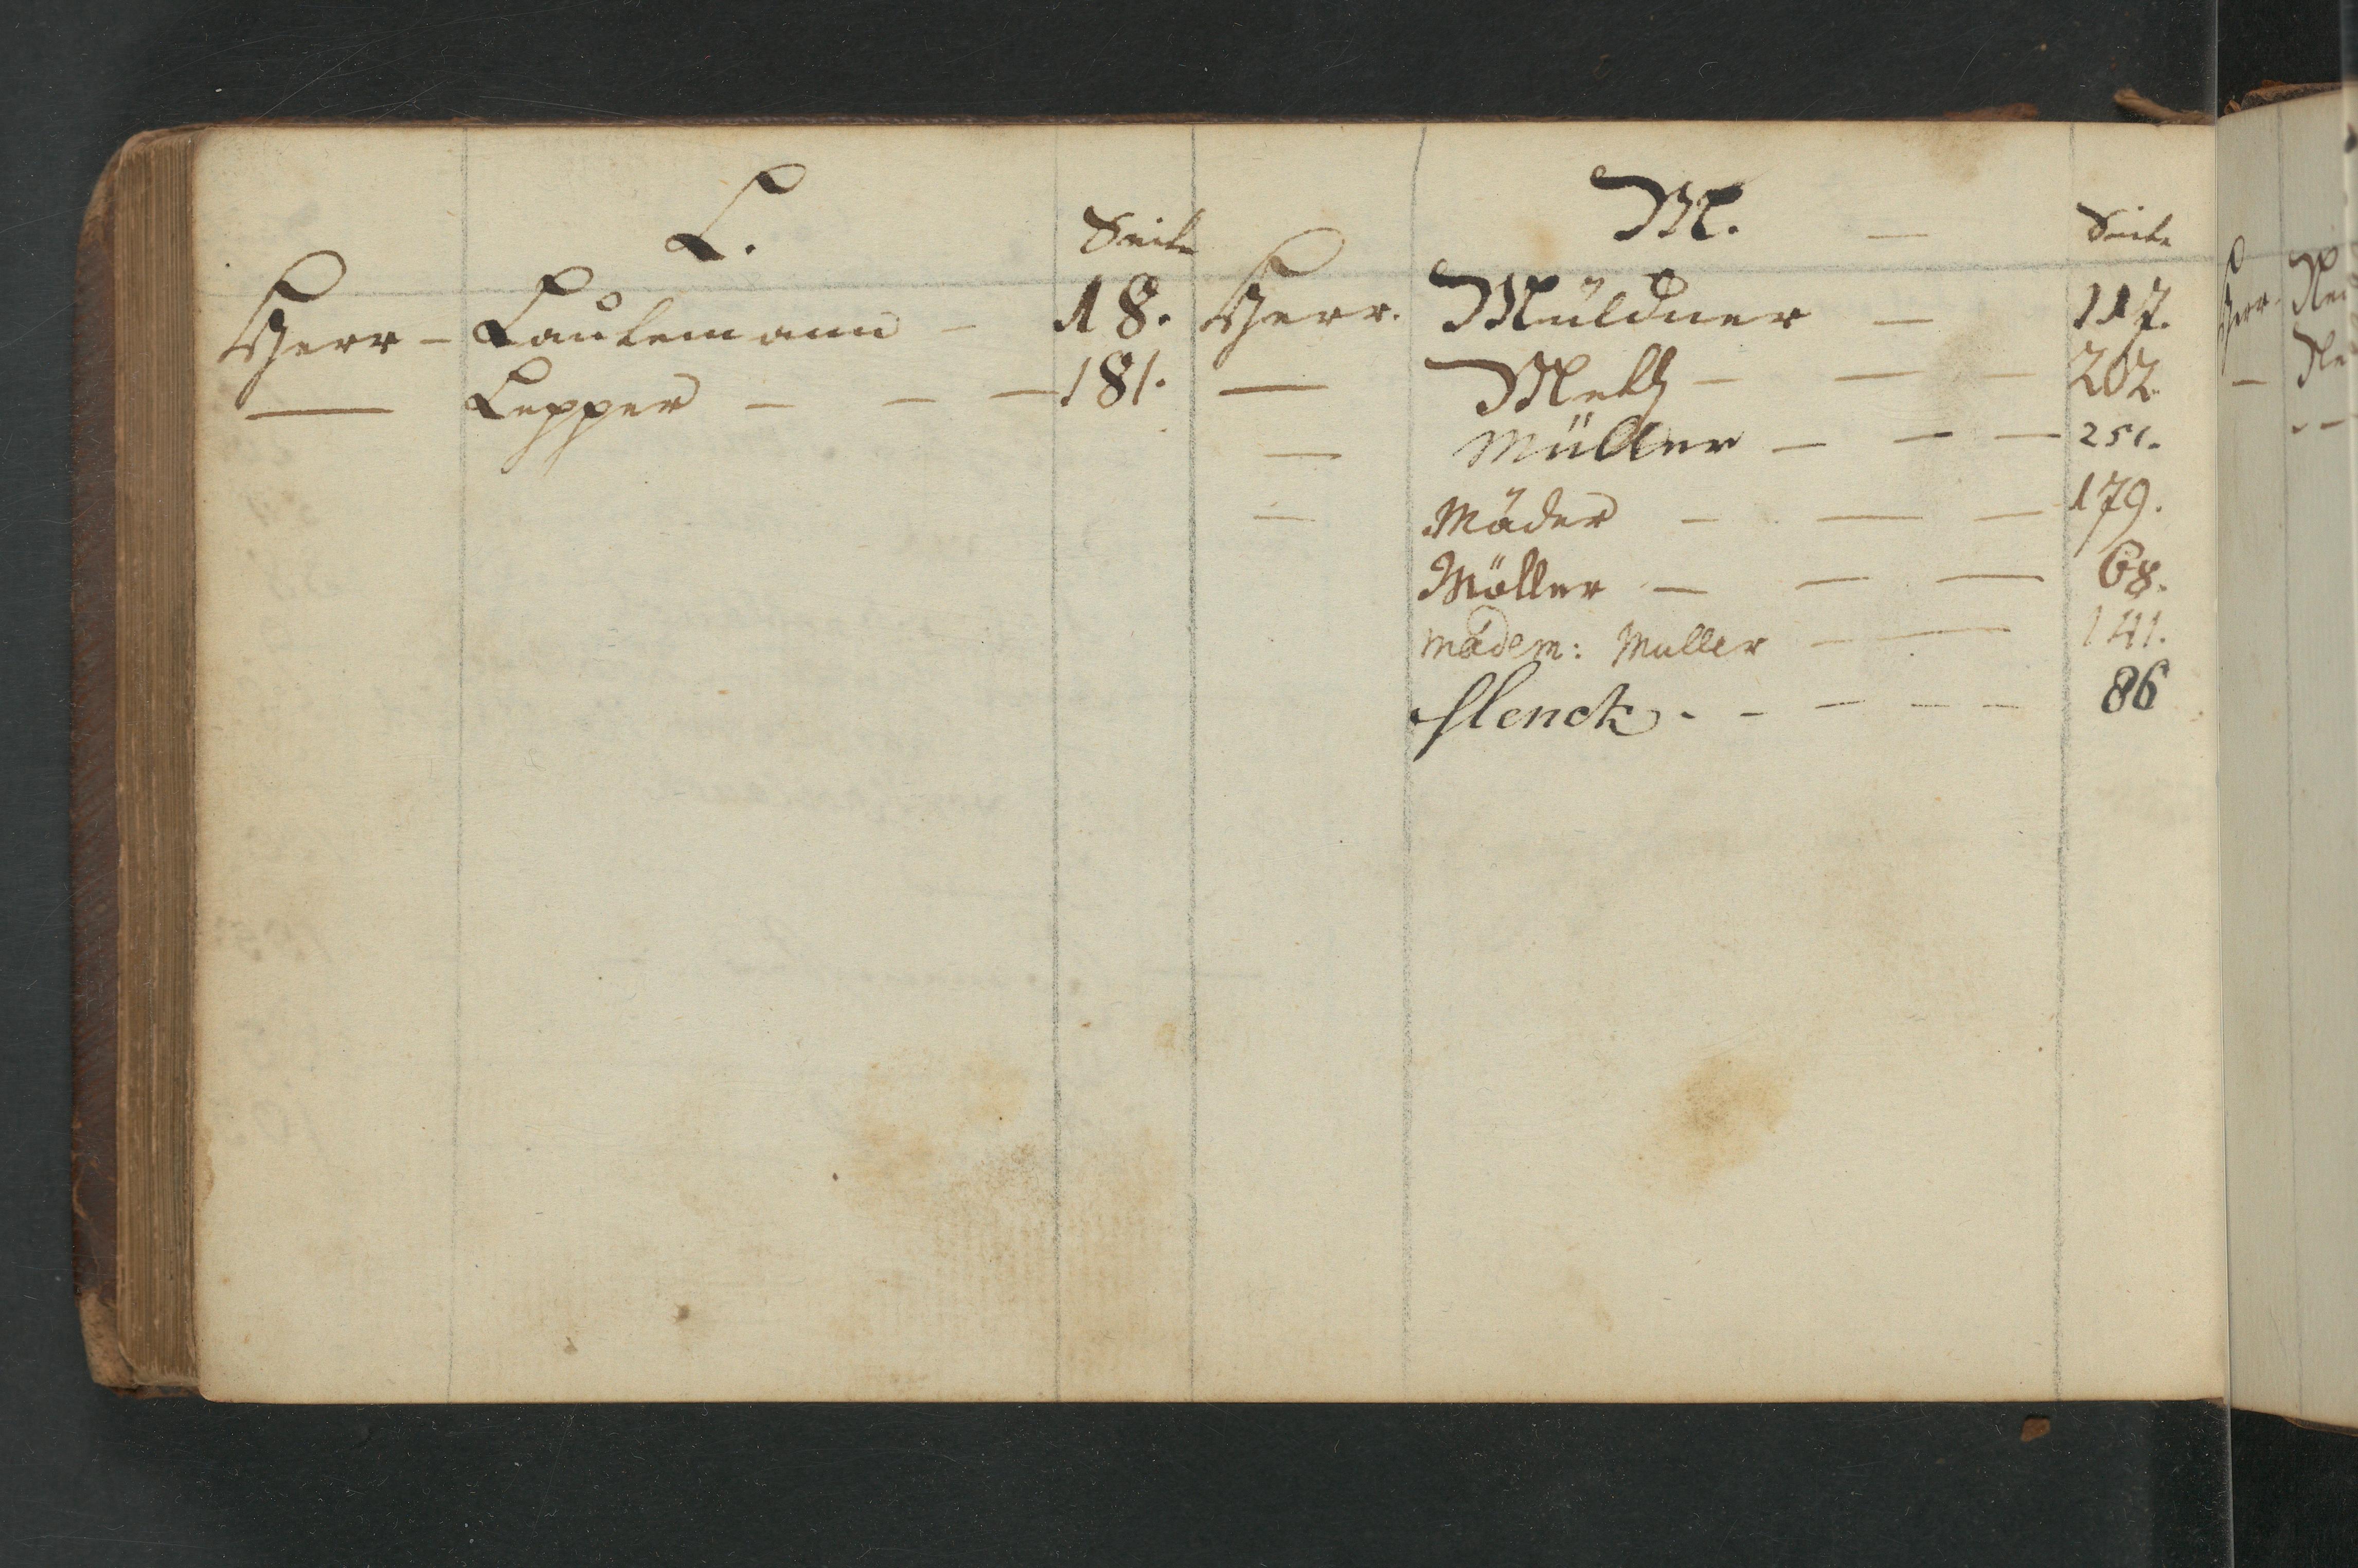 L.
Seite
Herr - Lautemann - 18.
— Lepper - - - 181.
M.
Seite
Herr. Müldner - 117.
— Metz - - - 202.
— Müller - - - 251.
— Mäder - - - 179.
Möller - - - 68.
Madem: Muller - - 141.
86
Herr